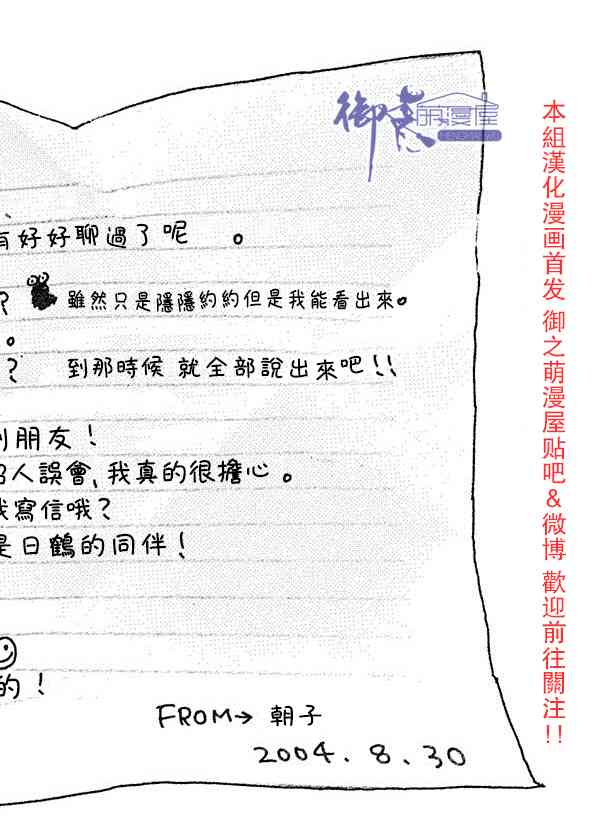 御意
萌漫屋
有好好聊過了呢 。
? 雖然只是隱隱約約但是我能看出來。
。
? 到那時候 就全部說出來吧!!
到朋友!
招人誤會,我真的很擔心。
我寫信哦?
是日鶴的同伴!
的!
FROM→ 朝子
2004.8.30
本組漢化漫画首发 御之萌漫屋贴吧&微博 歡迎前往關注!!